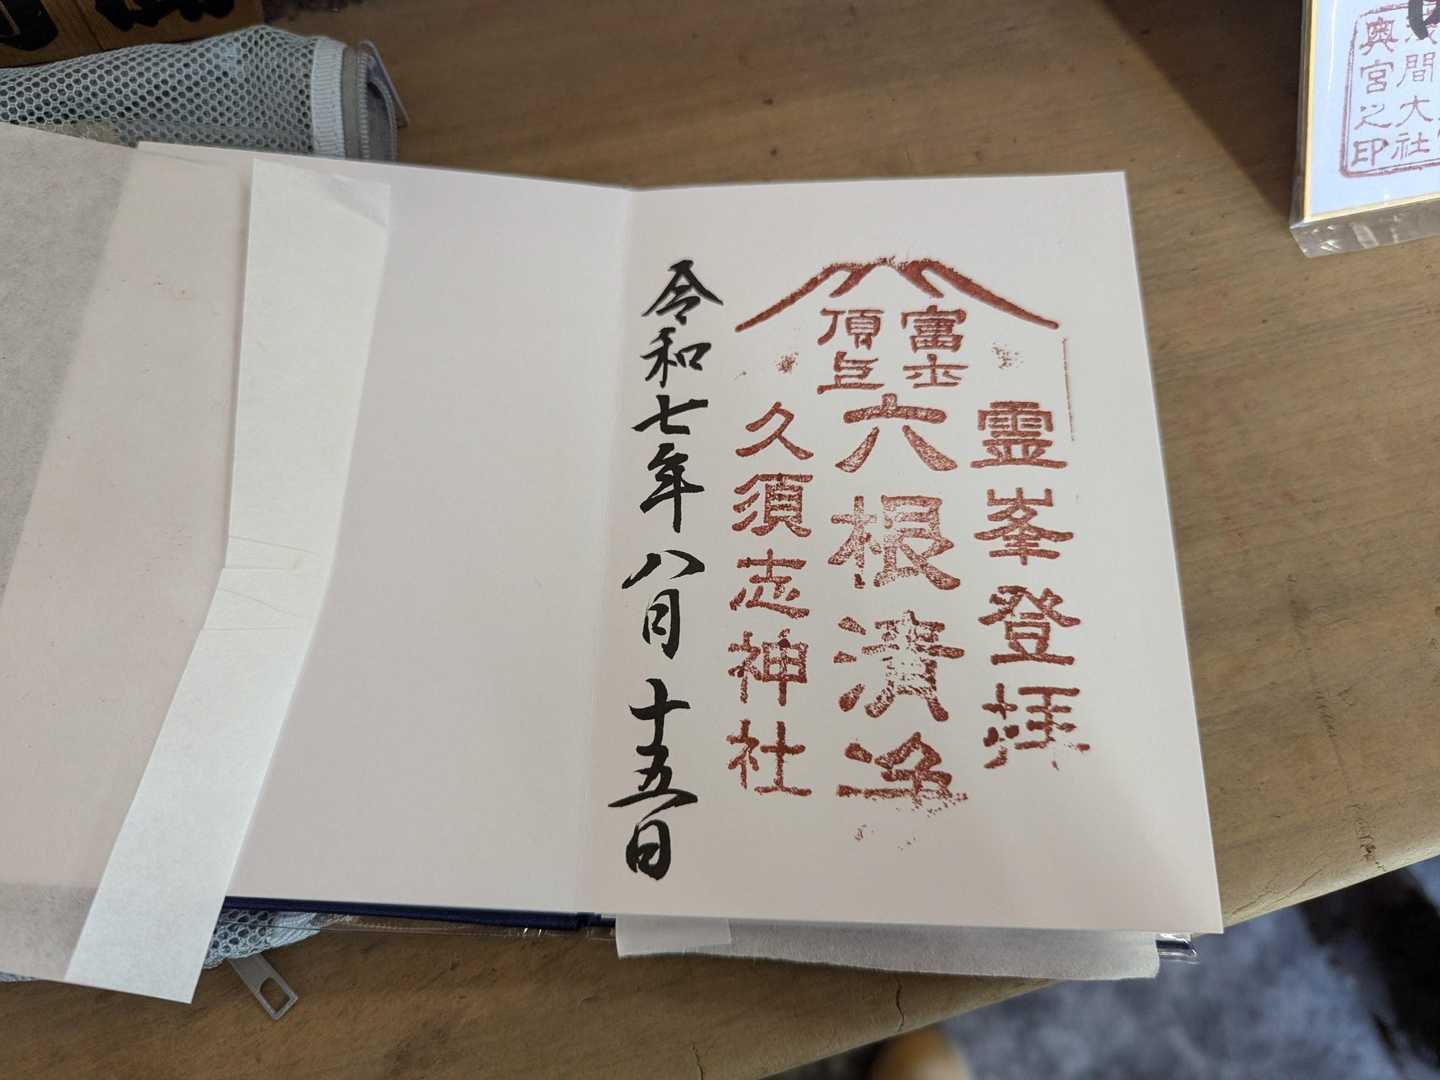 霊峯登拝
富士
頂上
六根清浄
久須志神社
令和七年八月十五日
間大社
奥宮之印